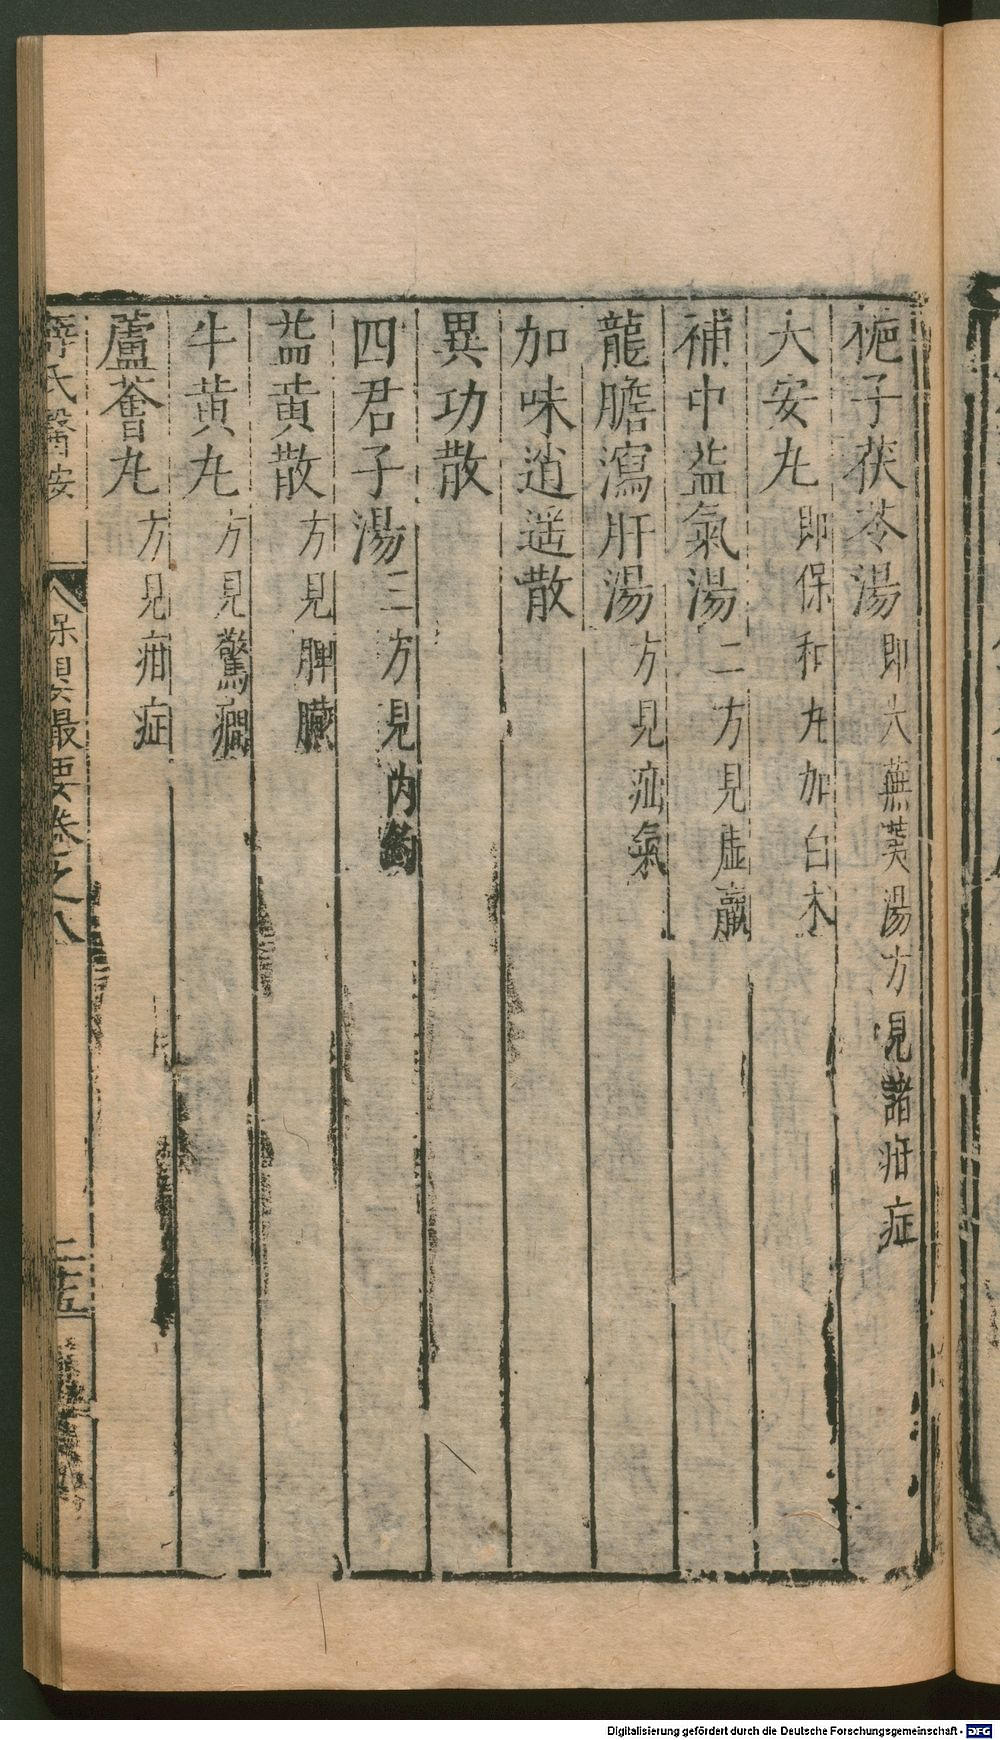 梔子茯苓湯即大蕪荑湯方見諸疳症
大安丸即保和丸加白术
補中益氣湯二方見虛羸
龍膽瀉肝湯方見疝氣
加味逍遥散
異功散
四君子湯三方見内釣
益黄散方見脾臟
牛黄丸方見驚癇
蘆薈丸方見疳症
薛氏醫按
保嬰最要卷之八
二十五
Digitalisierung gefördert durch die Deutsche Forschungsgemeinschaft - DFG